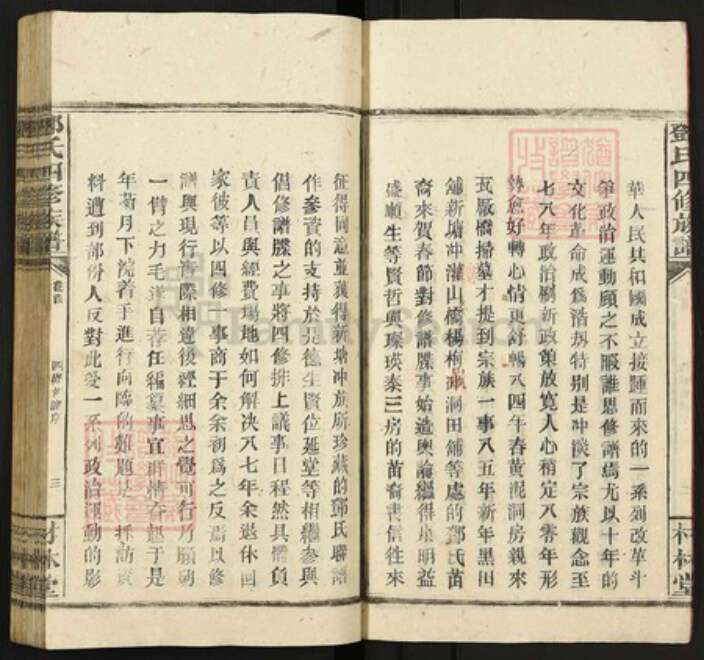 鄧氏四修族譜
華人民共和國成立接踵而來的一系列改革斗
爭政治運動顧之不暇誰思修譜焉尤以十年的
文化革命成爲浩刼特別是冲淡了宗族觀念至
七八年政治刷新政策放寬人心稍定八零年形
勢愈好轉心情更舒暢八四年春黄泥洞房親來
瓦廠橋掃墓才提到宗族一事八五年新年黑田
舖新塘冲灌山橋楊梅冲洞田舖等處的鄧氏苗
裔來賀春節對修譜牒事始造輿論繼得 明益
盛順生等賢哲與琛瑛泰三房的苗裔書信往來
材林堂
征得同意並獲得新塘冲族所珍藏的鄧氏聯譜
作參資的支持於是德生賢位延堂等相繼參與
倡修譜牒之事將四修排上議事日程然具體負
責人員與經費塲地如何解决八七年余退休回
家彼等以四修一事商于余余初爲之反焉以修
譜與現行 際相違後經細思之覺可行乃願助
一臂之力毛遂自荐任編纂事宜 精 起于是
年菊月下浣着手進行向臨的難題是 採訪資
料遭到部份人反對此受一系列政治運動的影
鄧氏四修族譜
卷首
四修 譜序
三
材林堂